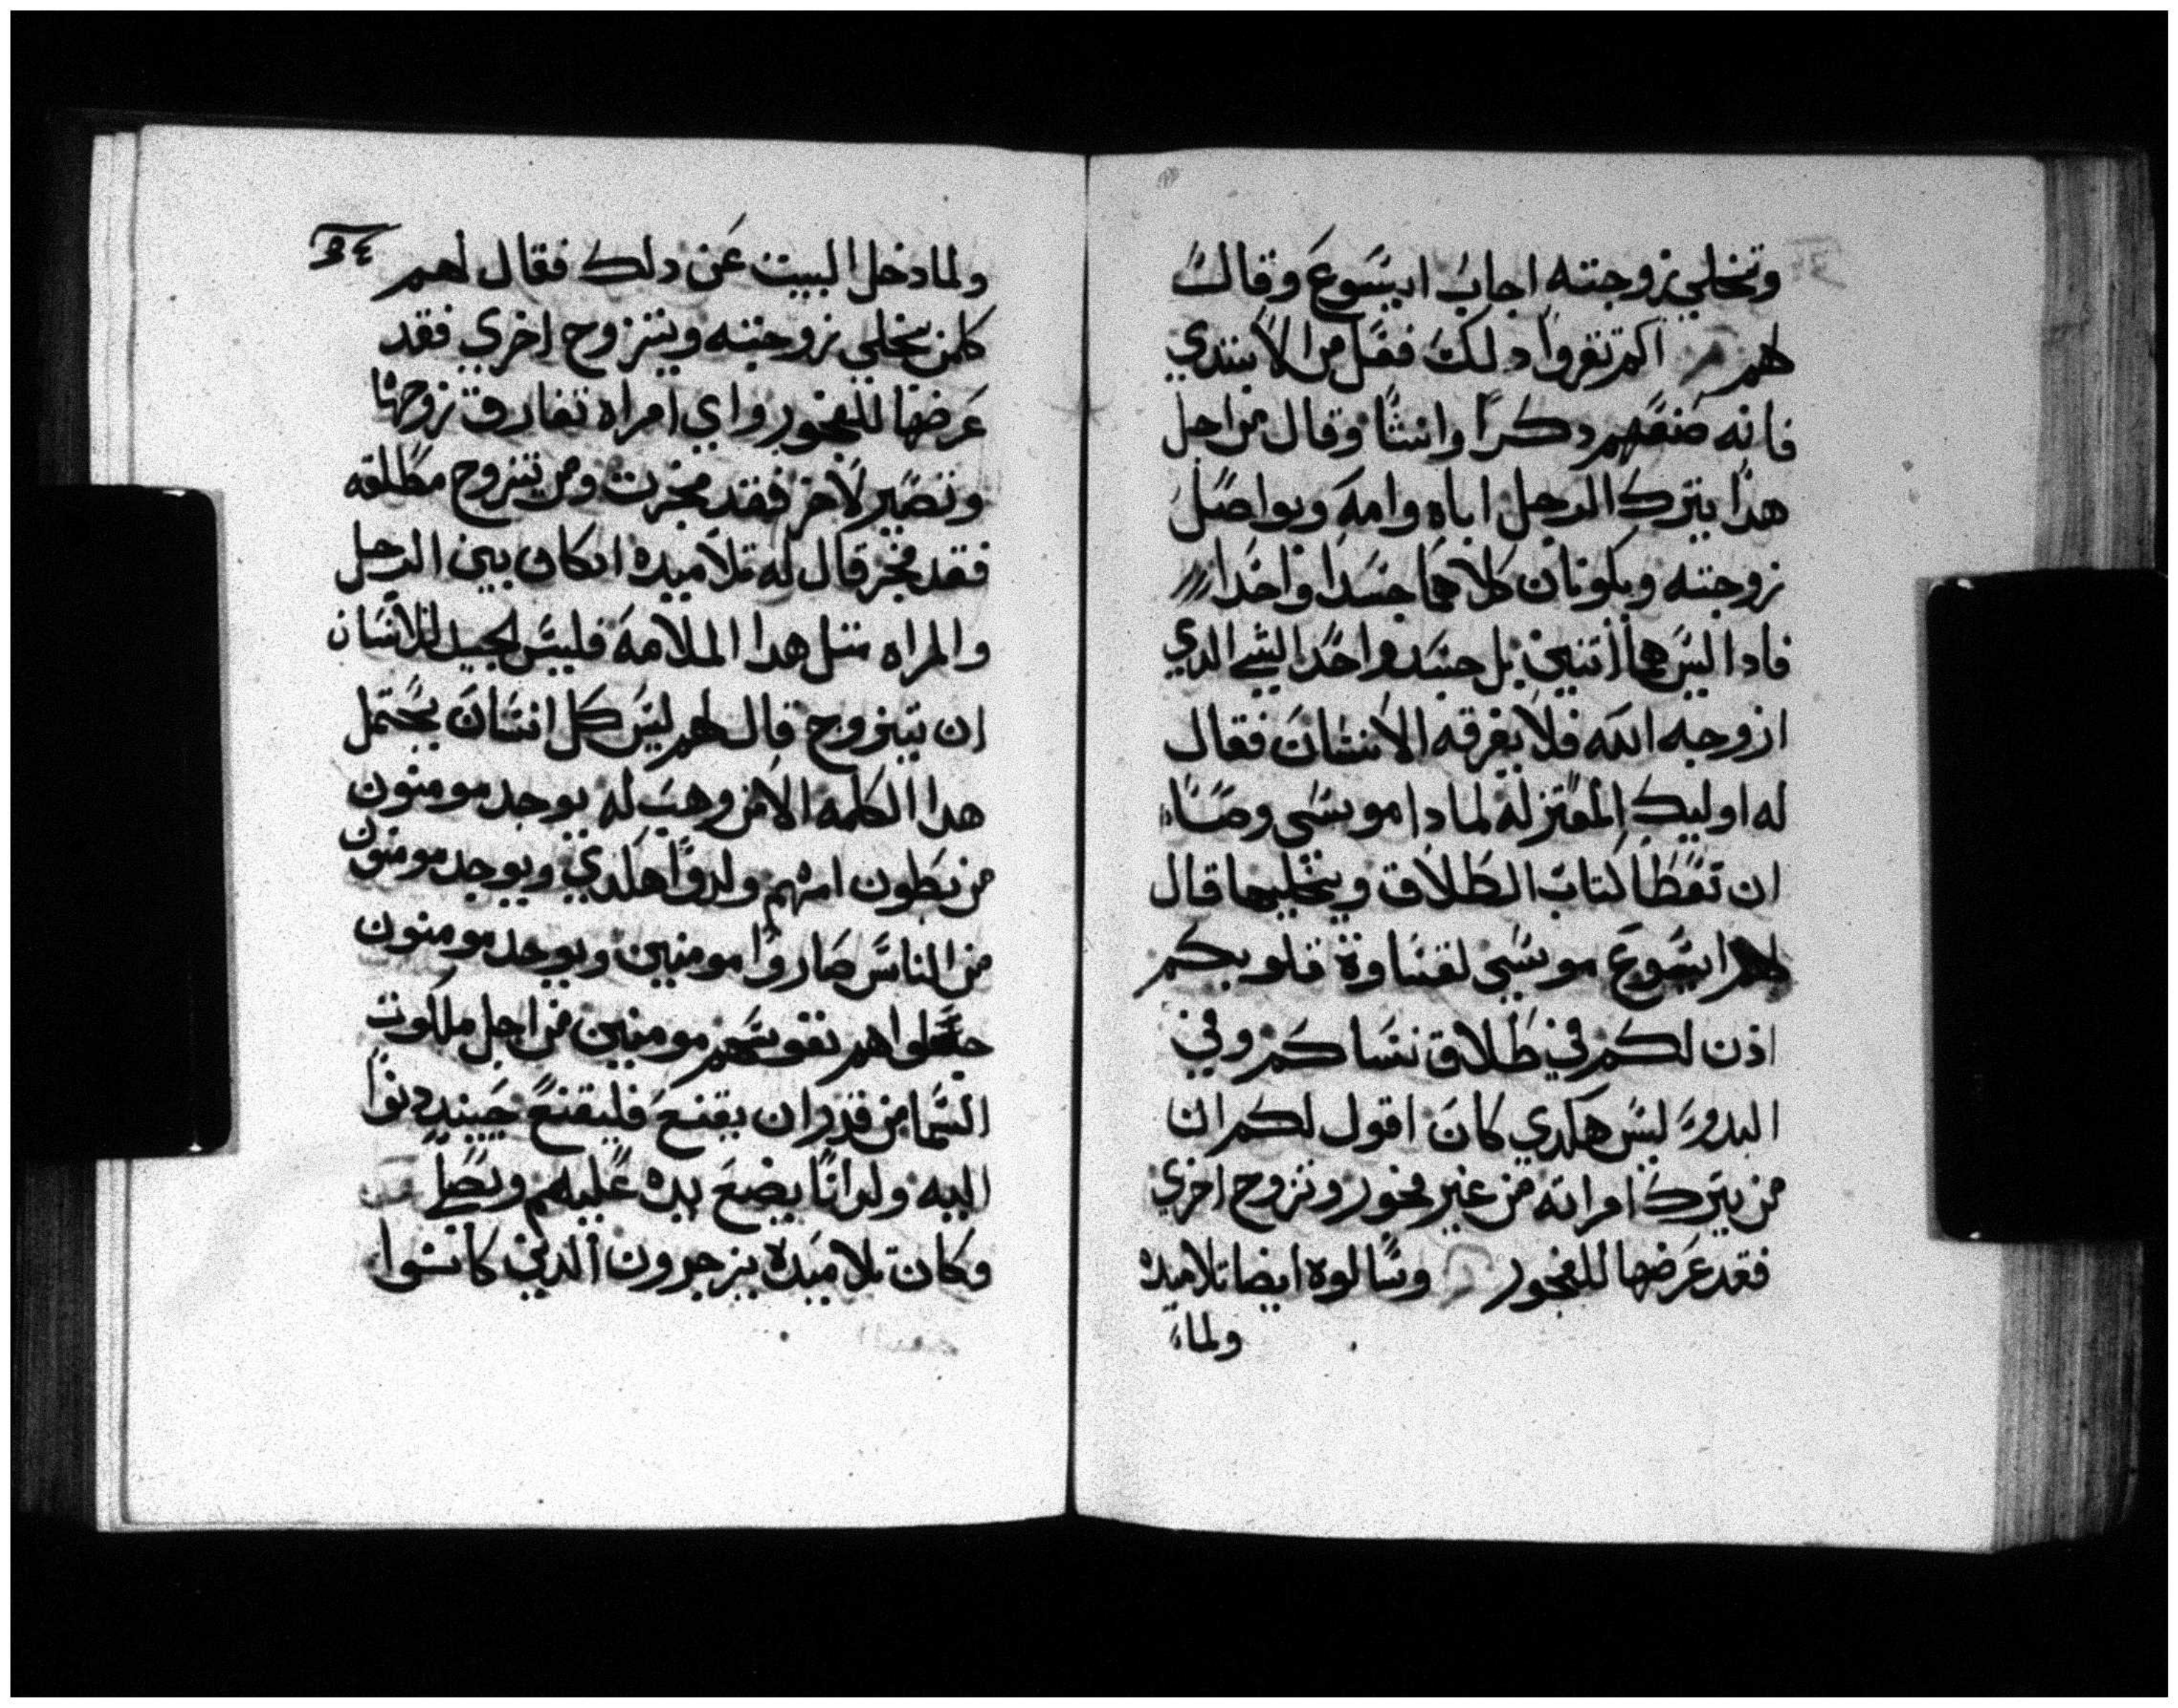 وتخلي زوجته اجاب ايسوع وقال
لهم الم تقروا دلك فعل من الابتدي
فانه صنعهم دكرا وانتا وقال من اجل
هدا يترك الرجل اباه وامه ويواصل
زوجته ويكونان كلاهما جسدا واحدا
فادا ليس هما اتنين بل جسد واحد الشي الدي
ازوجه الله فلا يفرقه الانسان فقال
له اوليك المعتزله لمادا موسي وصا
ان تعطا كتاب الطلاق ويخليها قال
لهم ايسوع موسي لقساوة قلوبكم
اذن لكم في طلاق نساكم وفي
البدو ليس هكدي كان اقول لكم ان
من يترك امراته من غير فجور وتزوج اخري
فقد عرضها للفجور وسالوه ايضا تلاميده
ولما
34
ولما دخل البيت عن دلك فقال لهم
كلمن يخلي زوجته ويتزوج اخري فقد
عرضها للفجور واي امراه تفارق زوجها
وتصير لاخر فقد فجرت ومن تتزوج مطلقه
فقد فجر قال له تلاميده ان كان بين الرجل
والمراه متل هدا الملامه فليس بجيد للانسان
ان يتزوج قال لهم ليس كل انسان يحتمل
هدا الكلمه الا من وهب له يوجد مومنون
من بطون امهم ولدوا هكدي ويوجد مومنون
من الناس صاروا مومنين ويوجد مومنون
جعلوا هم نفوسهم مومنين من اجل ملكوت
السما من قدر ان يقنع فليقنع حينيد دنوا
اليه ولدانا يضع يده عليهم ويصلي
وكان تلاميده يزجرون الدين كانوا